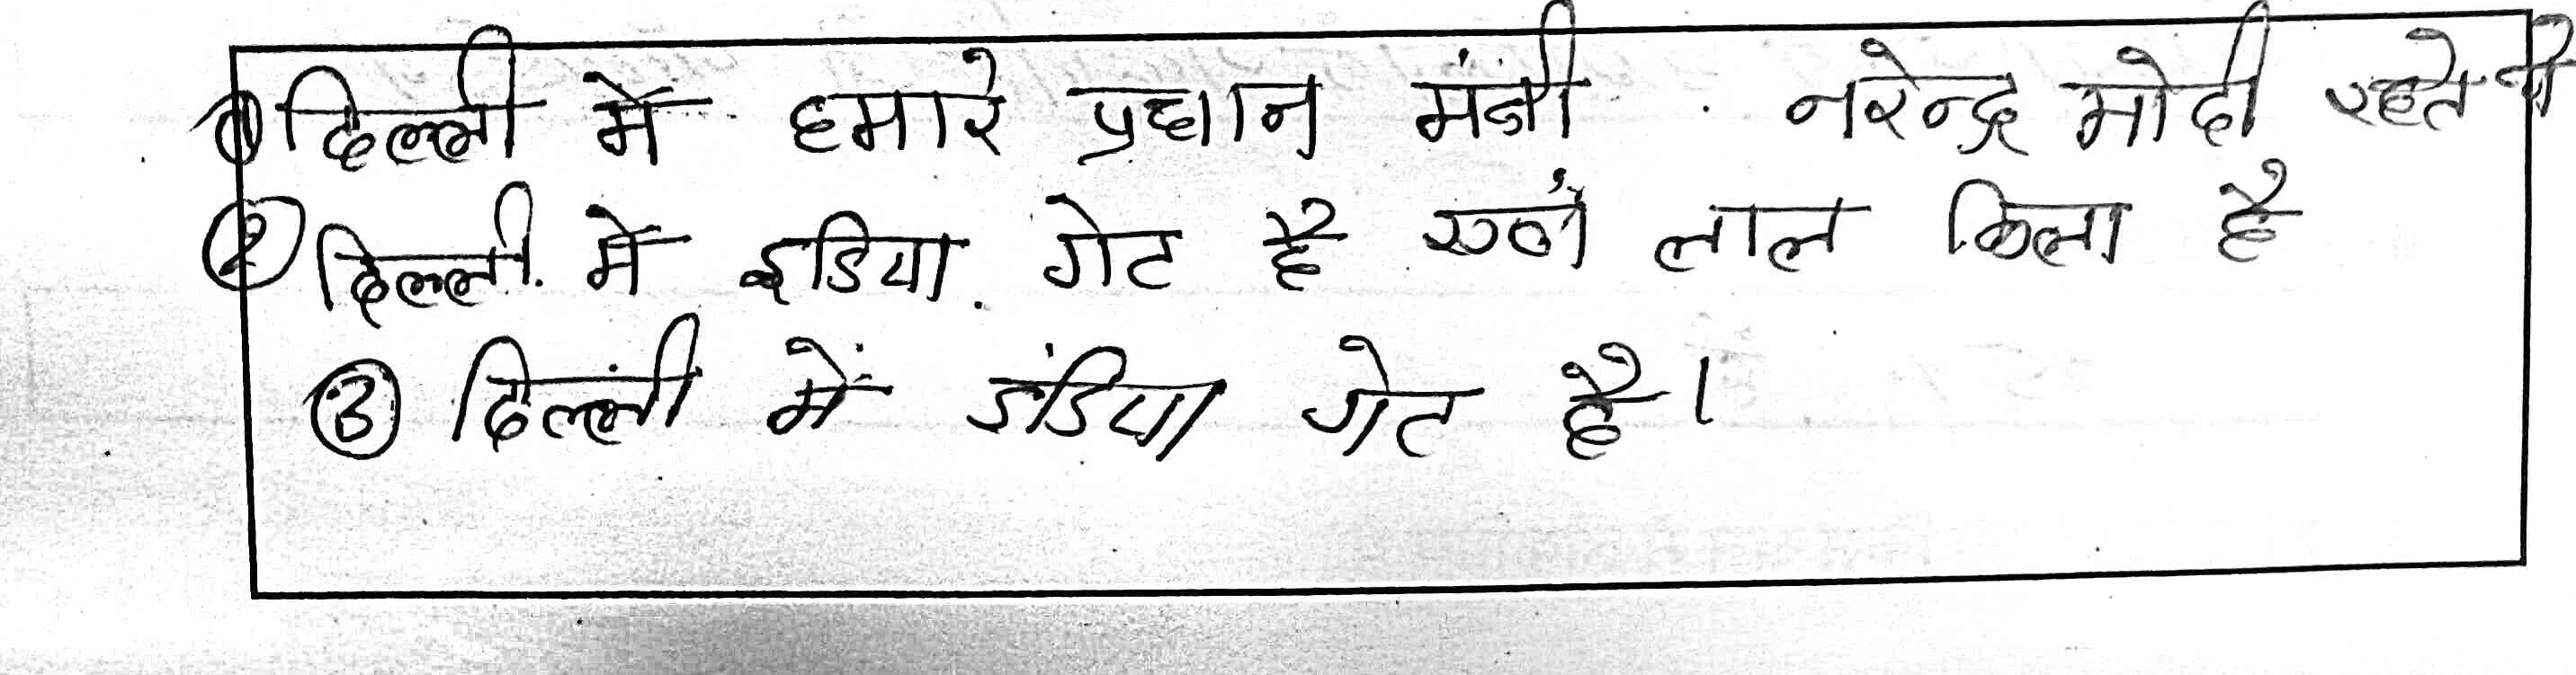 ① दिल्ली में हमारे प्रधान मंत्री नरेन्द्र मोदी रहते
② दिल्ली में इडिया गेट है लाल किला है
③ दिल्ली में इंडिया गेट है।